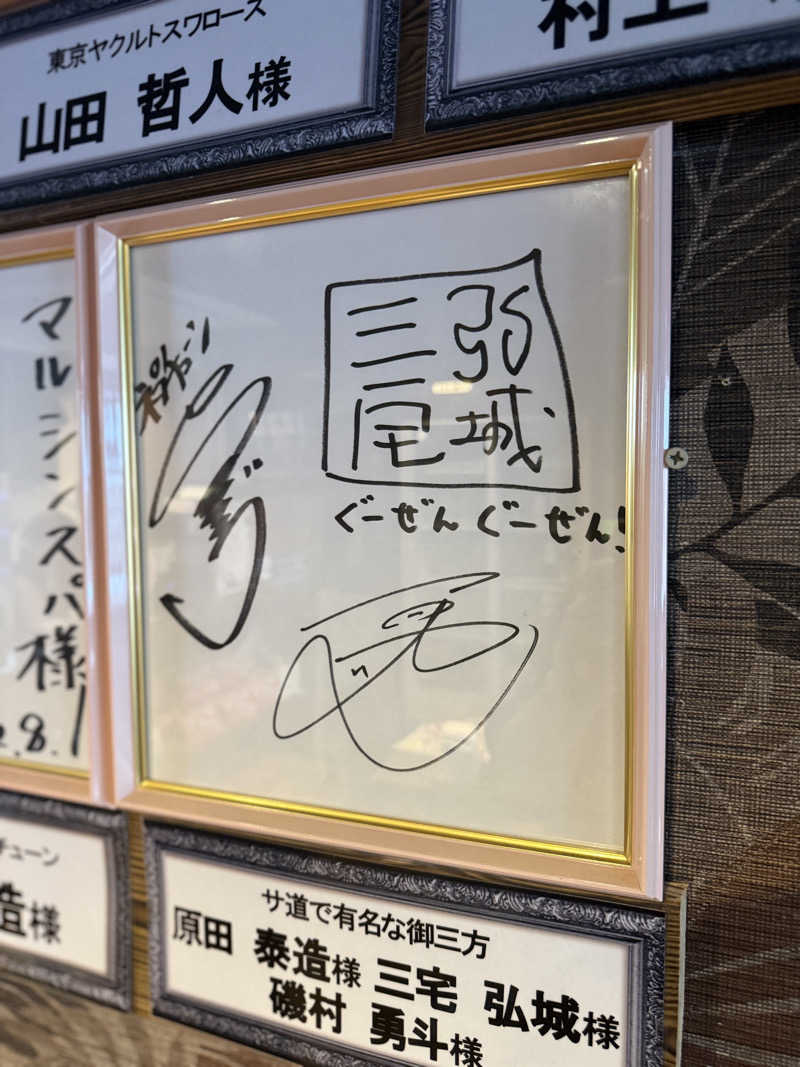 東京ヤクルトスワローズ
山田 哲人様
村上
マルシンスパ様
.8.1
三宅
弘城
ぐーぜんぐーぜん!
チューン
造様
サ道で有名な御三方
原田 泰造様 三宅 弘城様
磯村 勇斗様